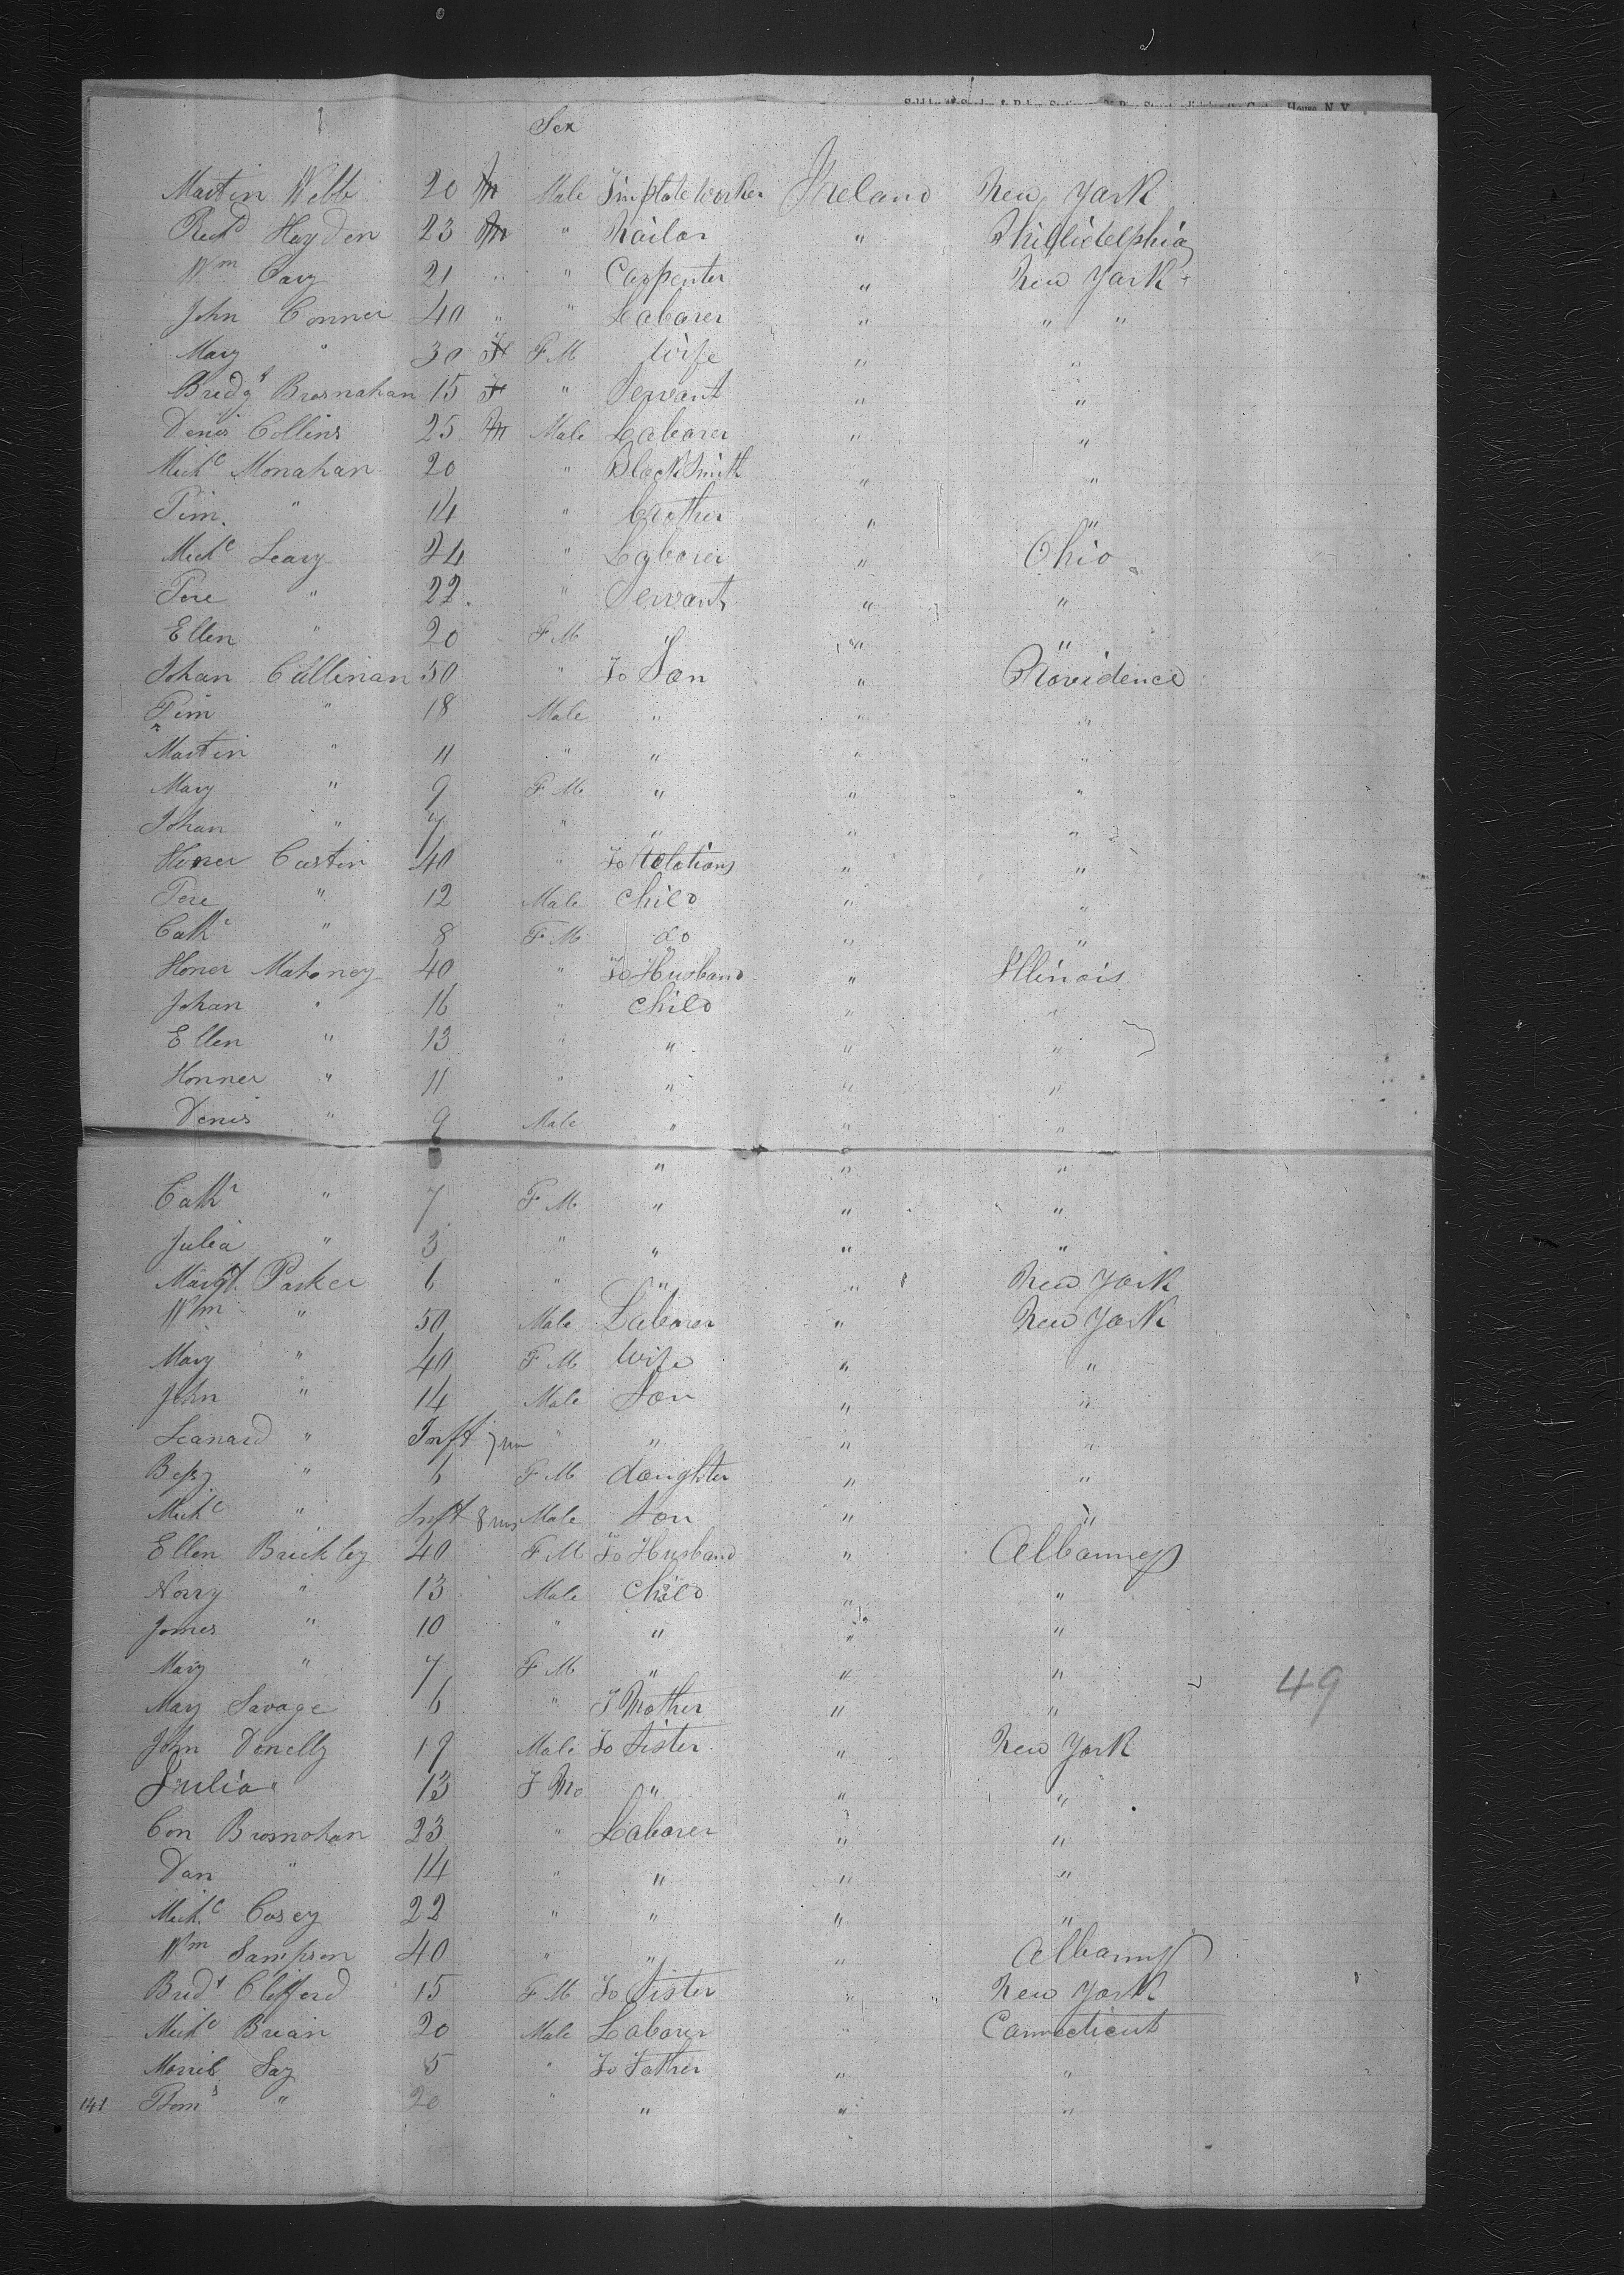 Sex
Martin Webb 20 M Male Tinplate Worker Ireland New York
Richd Hayden 23 M " Nailor " Philliidelphia
Wm Cary 21 " " Carpenter " New York
John Conner 40 " " Laborer " " "
Mary " 30 F F M Wife " "
Bridgt Brosnahan 15 F " Servant " "
Denis Collins 25 M Male Laborer " "
Michl Monahan 20 " BlackSmith " "
Tim " 14 " brother " "
Michl Leary 24 " Laborer " Ohio
Pere " 22 " Servant " "
Ellen " 20 F M " " "
Johan Callinan 50 " To Son " Providence
Tim " 18 Male " " "
Martin " 11 " " " "
Mary " 9 F M " " "
Johan " 7 " " " "
Honer Curtin 40 " To Relations " "
Pere " 12 Male child " "
Cathr " 8 F M do " "
Honer Mahoney 40 " To Husband " Illinois
Johan " 16 " child " "
Ellen " 13 " " " "
Honner " 11 " " " "
Denis " 9 Male " " "
" " "
Cathr " 7 F M " " "
Julia " 3 " " " "
Margt. Parker 6 " " " New York
Wm " 50 Male Laborer " New York
Mary " 40 F M Wife " "
John " 14 Male Son " "
Leanard " Inft 7 m " " " "
Bessy " 6 F M daughter " "
Michl " Inft 8 ms Male Son " "
Ellen Brickley 40 F M To Husband " Albanney
Norry " 13 Male Child " "
James " 10 " " " "
Mary " 7 F M " " "
49
Mary Savage 6 " T Mother " "
John Donelly 19 Male To Sister " New York
Julia " 13 F Mo " " "
Con Brosnohan 23 " Laborer " "
Dan " 14 " " " "
Michl Casey 22 " " " "
Wm Sampson 40 " " " Albanny
Bridt Clifferd 15 F M To Sister " New York
Michl Brian 20 Male Laborer " Connecticut
Say 5 " To Father " "
141 Thoms " 20 " " " "